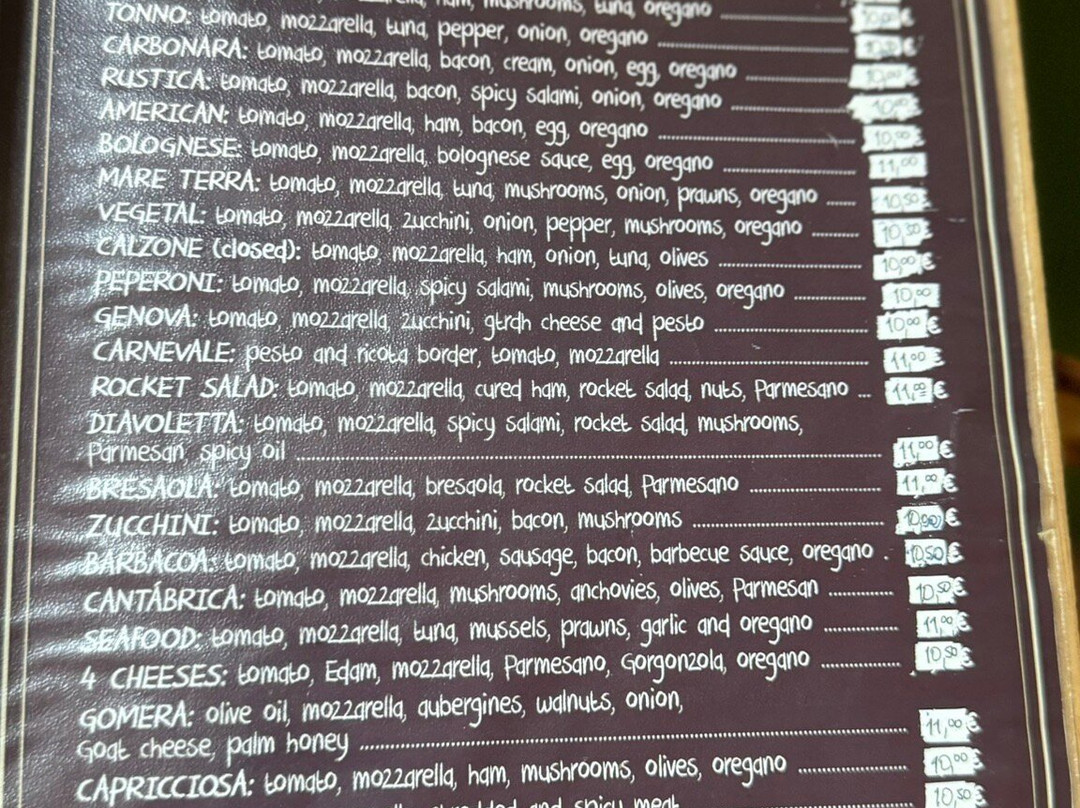 ham, mushrooms, tuna, oregano ..... 10,00€
TONNO: tomato, mozzarella, tuna, pepper, onion, oregano ..... €
CARBONARA: tomato, mozzarella, bacon, cream, onion, egg, oregano ..... 10,00€
RUSTICA: tomato, mozzarella, bacon, spicy salami, onion, oregano ..... 10,00€
AMERICAN: tomato, mozzarella, ham, bacon, egg, oregano ..... 10,00
BOLOGNESE: tomato, mozzarella, bolognese sauce, egg, oregano ..... 11,00
MARE TERRA: tomato, mozzarella, tuna, mushrooms, onion, prawns, oregano ..... 10,50
VEGETAL: tomato, mozzarella, zucchini, onion, pepper, mushrooms, oregano ..... 10,50€
CALZONE (closed): tomato, mozzarella, ham, onion, tuna, olives ..... 10,00€
PEPERONI: tomato, mozzarella, spicy salami, mushrooms, olives, oregano ..... 10,00
GENOVA: tomato, mozzarella, zucchini, gtrdh cheese and pesto ..... 10,00€
CARNEVALE: pesto and ricota border, tomato, mozzarella ..... 11,00€
ROCKET SALAD: tomato, mozzarella, cured ham, rocket salad, nuts, Parmesano ... 11,00€
DIAVOLETTA: tomato, mozzarella, spicy salami, rocket salad, mushrooms,
Parmesan spicy oil ..... 11,00€
BRESAOLA: tomato, mozzarella, bresaola, rocket salad, Parmesano ..... 11,00€
ZUCCHINI: tomato, mozzarella, zucchini, bacon, mushrooms ..... €
BARBACOA: tomato, mozzarella, chicken, sausage, bacon, barbecue sauce, oregano . 10,50€
CANTÁBRICA: tomato, mozzarella, mushrooms, anchovies, olives, Parmesan ..... 10,50€
SEAFOOD: tomato, mozzarella, tuna, mussels, prawns, garlic and oregano ..... 11,00€
4 CHEESES: tomato, Edam, mozzarella, Parmesano, Gorgonzola, oregano ..... 10,50€
GOMERA: olive oil, mozzarella, aubergines, walnuts, onion,
Goat cheese, palm honey ..... 11,00€
CAPRICCIOSA: tomato, mozzarella, ham, mushrooms, olives, oregano ..... 10,00€
and spicy meat 10,50€